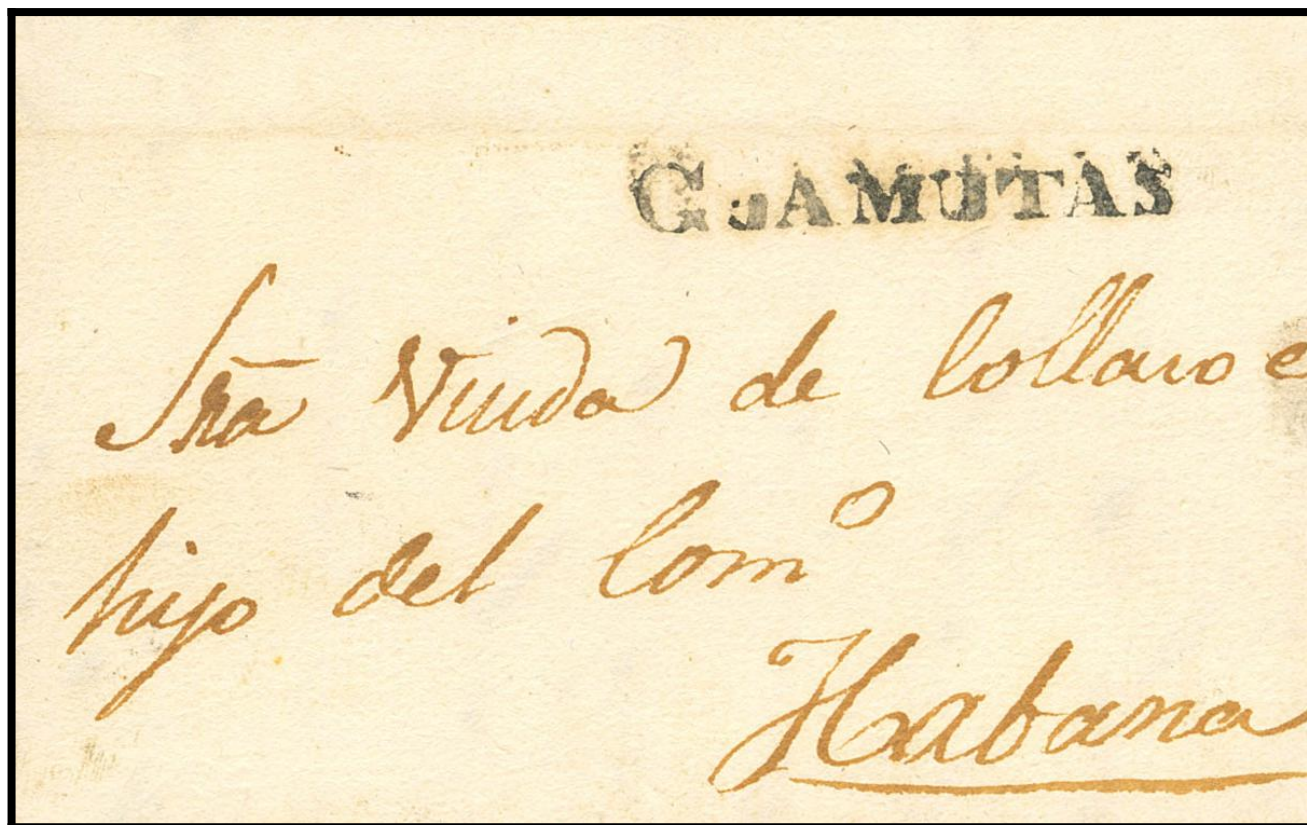 GUAMUTAS
Sra Viuda de Collazo e
hijo del Comº
Habana